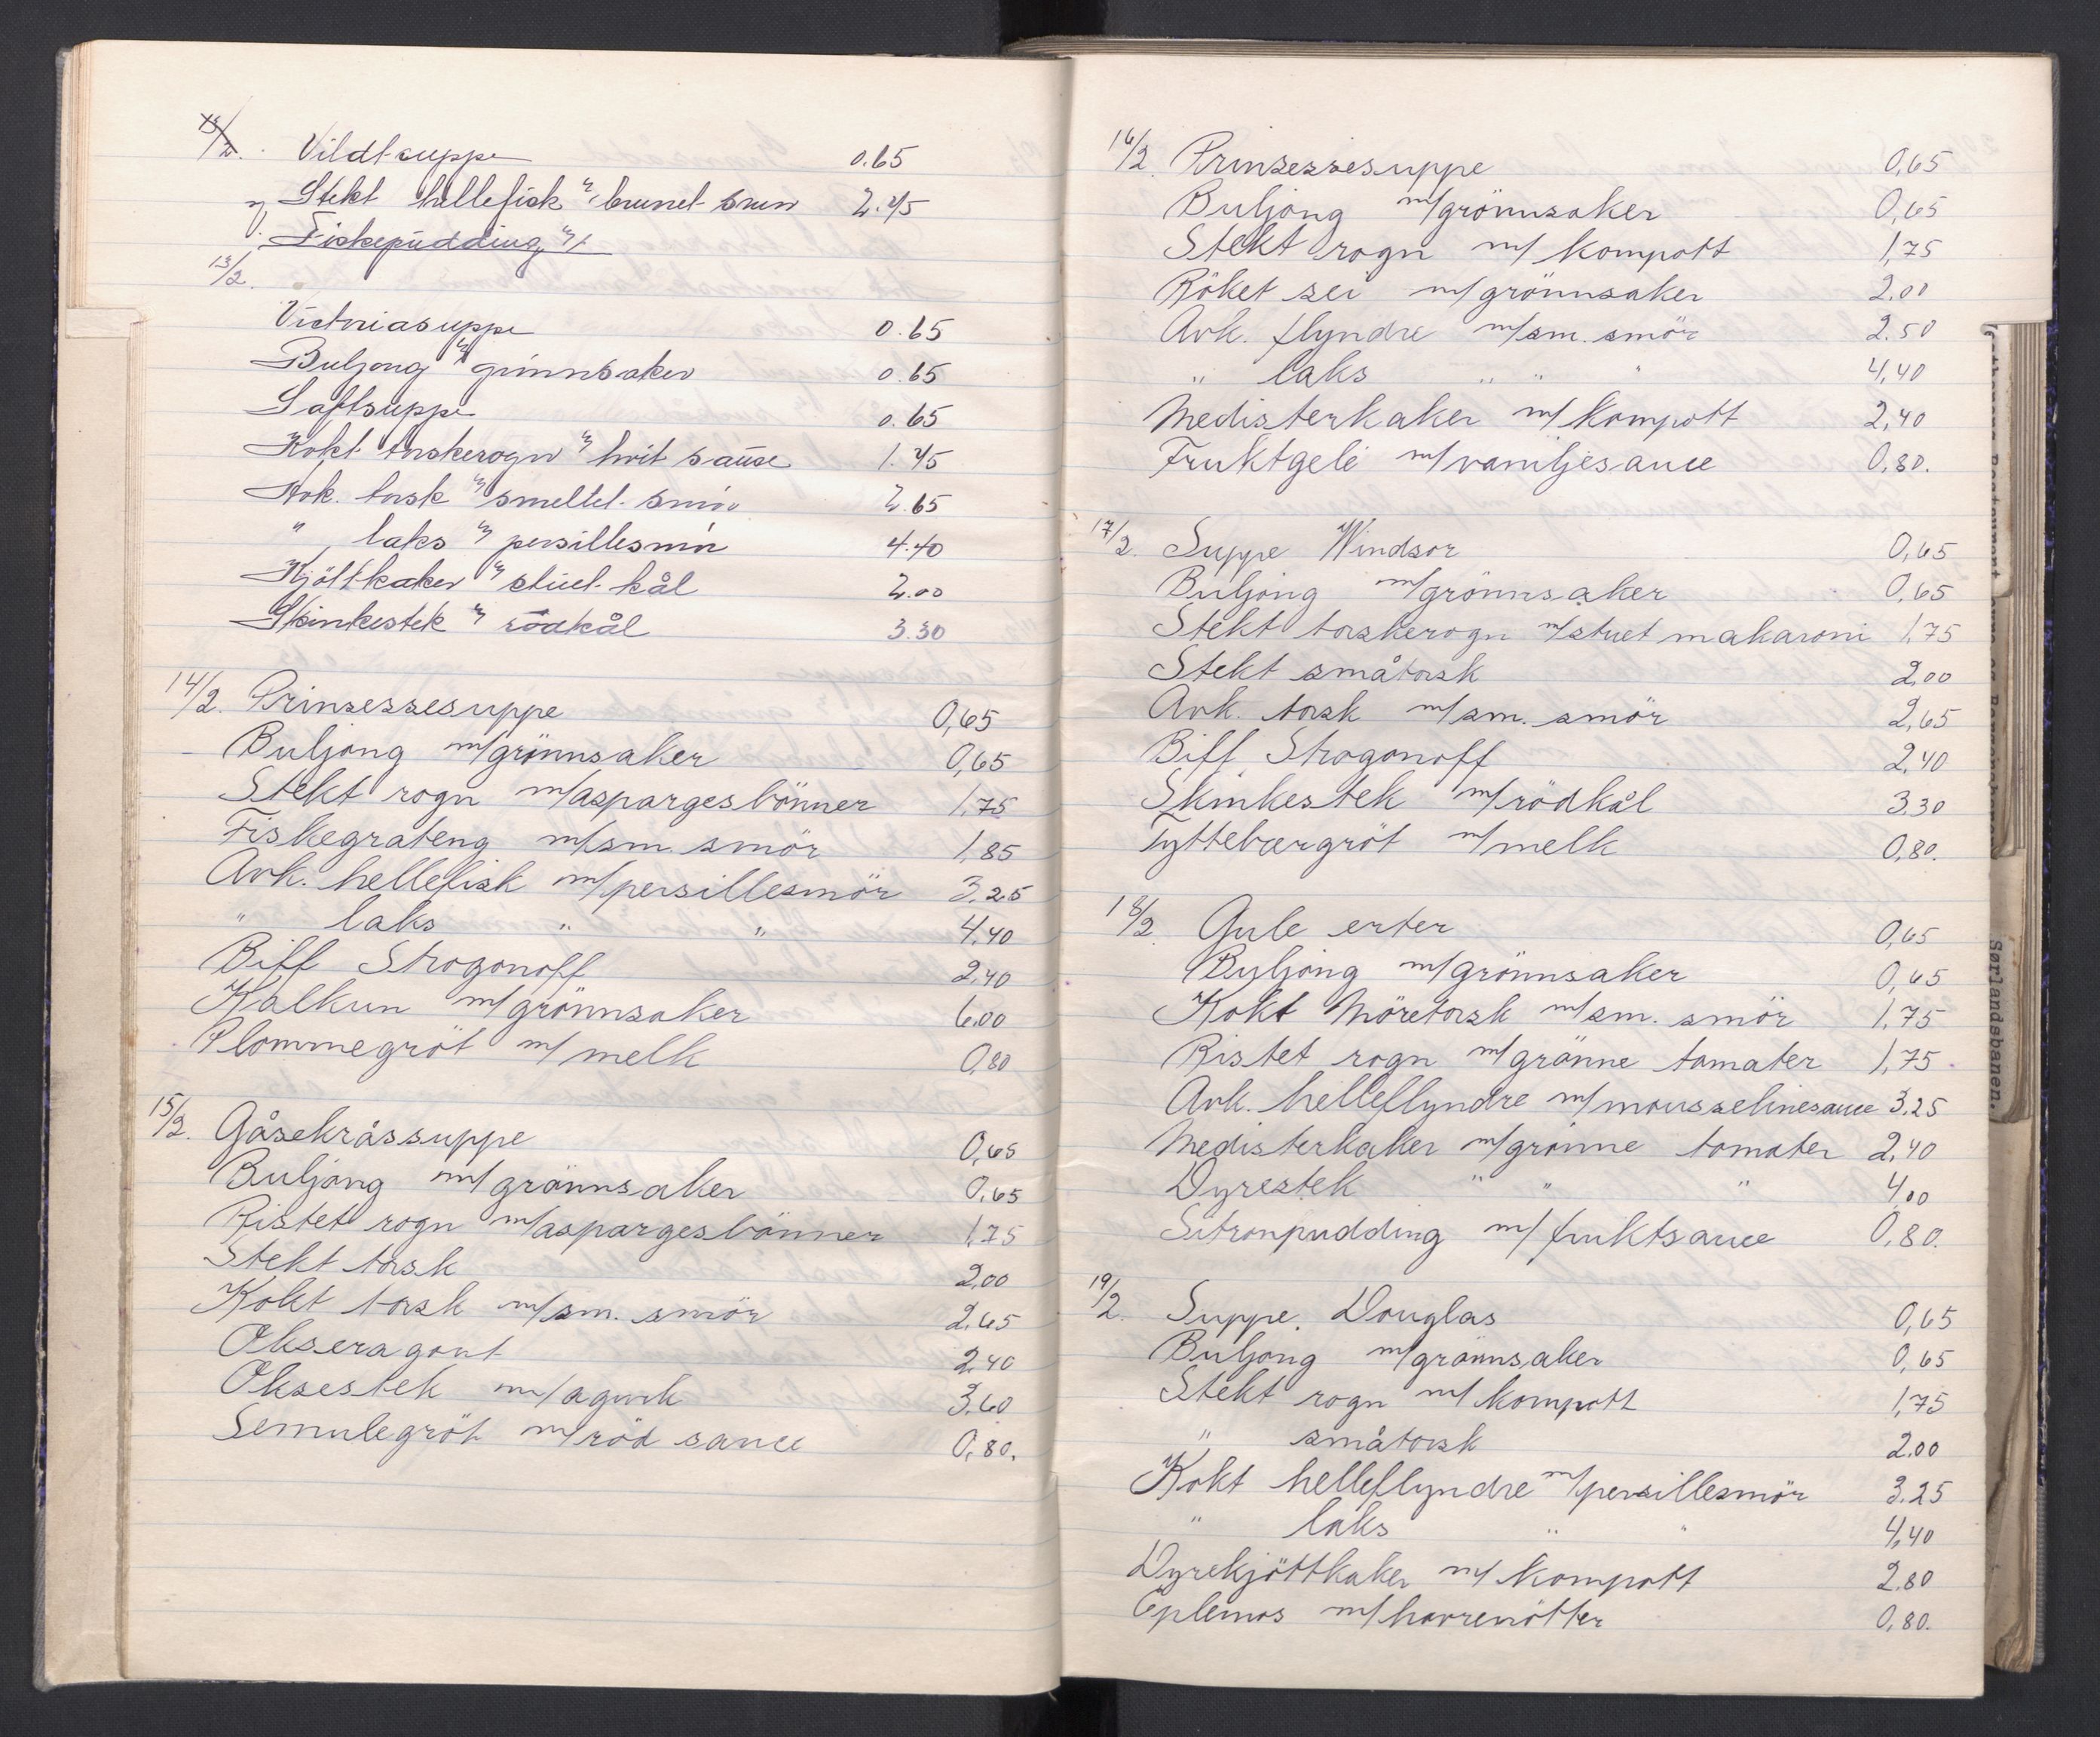 13/2. Vildtsuppe 0.65
Stekt hellefisk m/ brunet smør 2.45
Fiskepudding m/
13/2.
Victoriasuppe 0.65
Buljong m/ grønnsaker 0.65
Saftsuppe 0.65
Kokt torskerogn m/ hvit sause 1.45
Avk. torsk m/ smeltet smör 2.65
" laks m/ persillesmör 4.40
Kjöttkaker m/ stuet kål 2.00
Skinkestek m/ rödkål 3.30
14/2. Prinsessesuppe 0,65
Buljong m/grönnsaker 0,65
Stekt rogn m/aspargesbönner 1,75
Fiskegrateng m/sm. smör 1,85
Avk. hellefisk m/persillesmör 3,25
" laks " " 4,40
Biff Strogonoff 2,40
Kalkun m/grönnsaker 6,00
Plommegröt m/melk 0,80
15/2. Gåsekråssuppe 0,65
Buljong m/grönnsaker 0,65
Ristet rogn m/aspargesbönner 1,75
Stekt torsk 2,00
Kokt torsk m/sm. smör 2,65
Okseragout 2,40
Oksestek m/agurk 3,60
Semulegröt m/röd sauce 0,80.
16/2. Prinsessesuppe 0,65
Buljong m/grönnsaker 0,65
Stekt rogn m/kompott 1,75
Röket sei m/grönnsaker 2,00
Avk. flyndre m/sm. smör 2.50
" laks " " " 4,40
Medisterkaker m/kompott 2,40
Fruktgelé m/vaniljesauce 0,80.
17/2. Suppe Windsor 0,65
Buljong m/grönnsaker 0,65
Stekt torskerogn m/stuet makaroni 1,75
Stekt småtorsk 2,00
Avk. torsk m/sm. smör 2,65
Biff Strogonoff 2,40
Skinkestek m/rödkål 3,30
Tyttebærgröt m/melk 0,80.
18/2. Gule erter 0,65
Buljong m/grönnsaker 0,65
Kokt Möretorsk m/sm. smör 1,75
Ristet rogn m/grönne tomater 1,75
Avk. helleflyndre m/mousselinesauce 3,25
Medisterkaker m/grönne tomater 2,40
Dyrestek " " " 4,00
Sitronpudding m/fruktsauce 0,80.
19/2. Suppe Douglas 0,65
Buljong m/grönnsaker 0,65
Stekt rogn m/kompott 1,75
" småtorsk 2.00
Kokt helleflyndre m/persillesmör 3.25
" laks " " 4,40
Dyrekjöttkaker m/kompott 2.80
Eplemos m/havrenötter 0,80.
Sørlandsbanen.